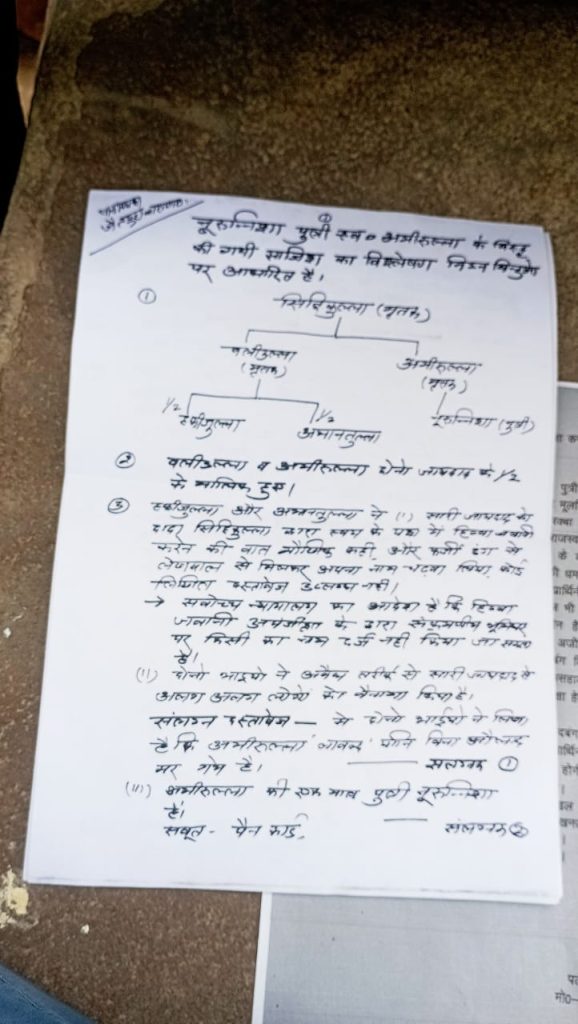 ①
नूरुन्निशा पुत्री स्व० अमीरुल्ला के विरुद्ध
की गयी साजिश का विश्लेषण निम्न बिन्दुओ
पर आधारित है।
① सिद्दिकुल्ला (मृतक)
वलीउल्ला अमीरुल्ला
(मृतक) (मृतक)
1/2 1/2 नूरुन्निशा (पुत्री)
हफीजुल्ला अमानतुल्ला
② वलीउल्ला व अमीरुल्ला दोनो जायदाद के 1/2
के मालिक हुए।
③ हफीजुल्ला और अमानतुल्ला ने (i) सारी जायदाद को
दादा सिद्दिकुल्ला द्वारा स्वयं के पक्ष में हिब्बा जबानी
करने की बात मौखिक कही, और फर्जी ढंग से
लेखपाल से मिलकर अपना नाम चढवा लिया, कोई
लिखित दस्तावेज उपलब्ध नही।
→ सर्वोच्च न्यायालय का आदेश है कि हिब्बा
जबानी अपंजीकृत के द्वारा संक्रमणीय भूमिधर
पर किसी का नाम दर्ज नही किया जा सकता
है।
(ii) दोनो भाइयो ने अवैध तरीके से सारी जायदाद के
अलग अलग लोगो को बैनामा किया है।
संलग्न दस्तावेज — में दोनो भाईयो ने लिखा
है कि अमीरुल्ला 'लावल्द' यानि बिना औलाद
मर गये है। —— संलग्नक ①
(iii) अमीरुल्ला की एक मात्र पुत्री नूरुन्निशा
है।
सबूत - पैन कार्ड, —— संलग्नक ②
पुत्री
मो०-